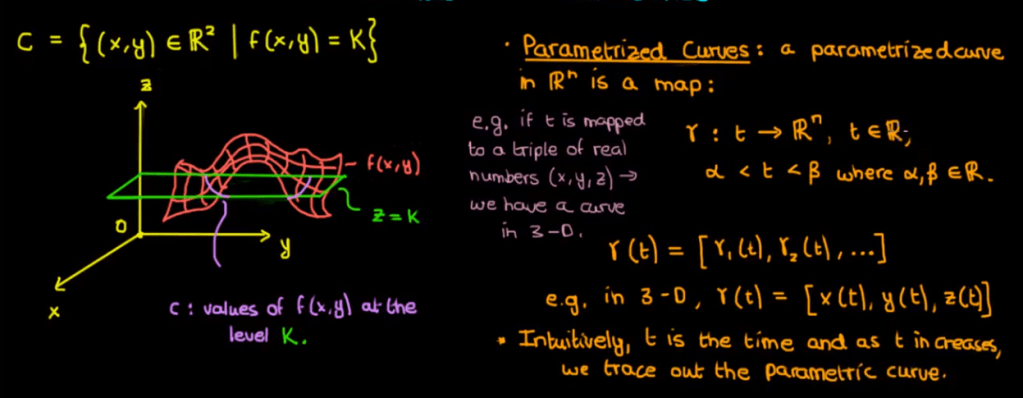 C = {(x,y) ∈ ℝ² | f(x,y) = K}
z
f(x,y)
z = K
O
y
x
C : values of f(x,y) at the
level K.
· Parametrized Curves : a parametrized curve
in ℝⁿ is a map :
e.g. if t is mapped
to a triple of real
numbers (x,y,z) →
we have a curve
in 3-D.
γ : t → ℝⁿ, t ∈ ℝ;
α < t < β where α,β ∈ ℝ.
γ(t) = [γ₁(t), γ₂(t), ...]
e.g. in 3-D, γ(t) = [x(t), y(t), z(t)]
• Intuitively, t is the time and as t increases,
we trace out the parametric curve.